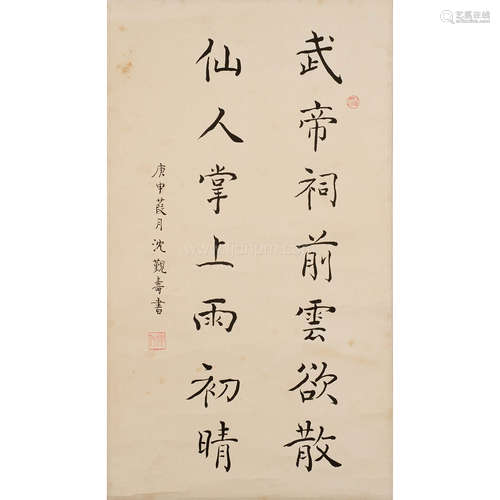 武帝祠前雲欲散
仙人掌上雨初晴
庚申葭月沈覲壽書